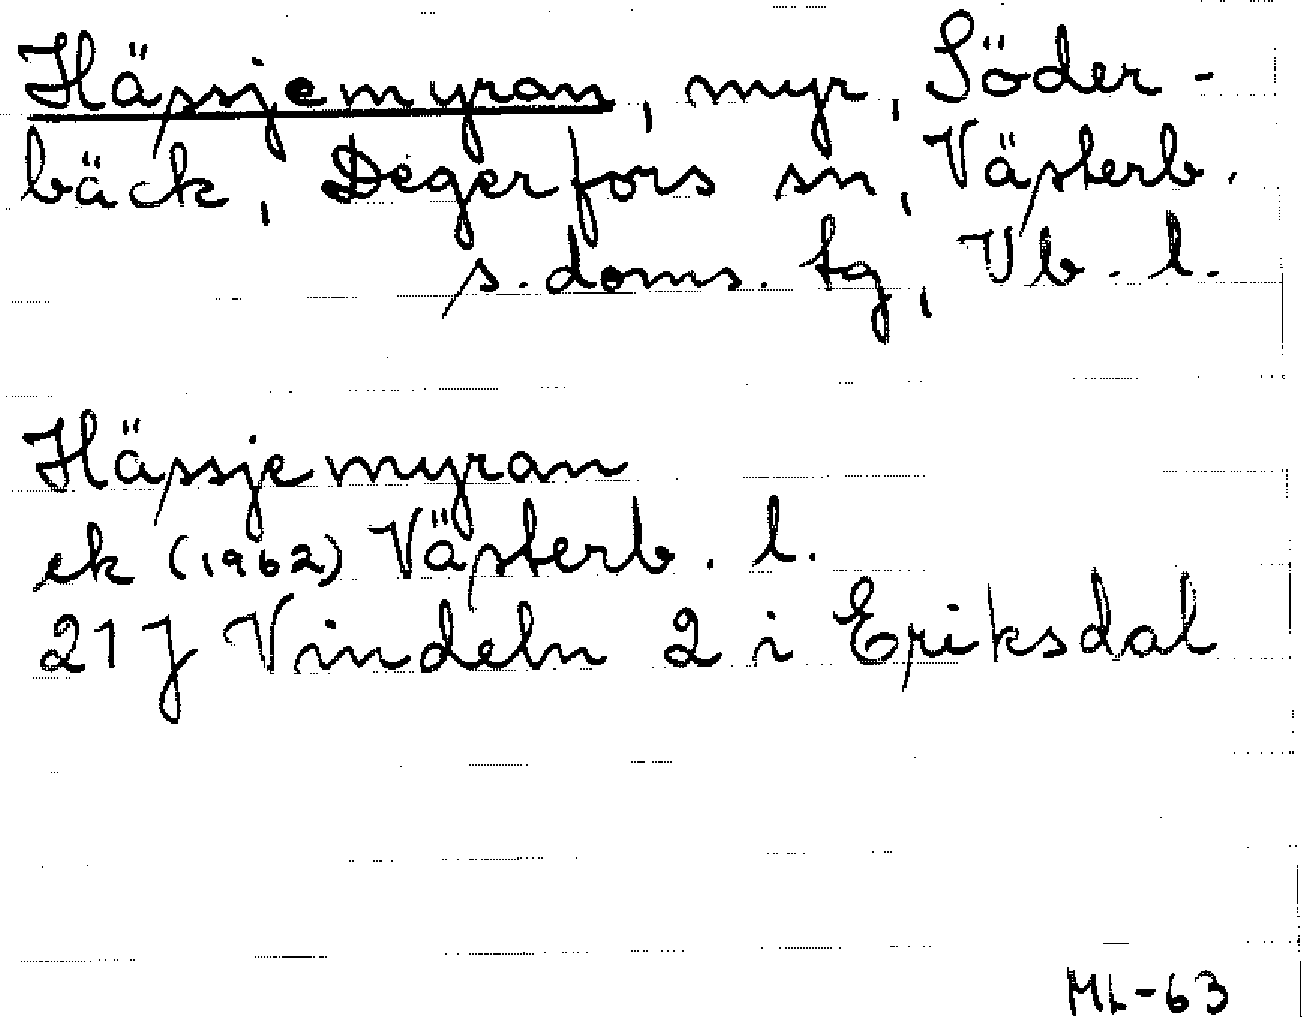 Hässjemyran, myr, Söder-
bäck, Degerfors sn, Västerb.
s. doms. tg, Vb. l.
Hässjemyran
ek (1962) Västerb. l.
21 J Vindeln 2 i Eriksdal
ML-63